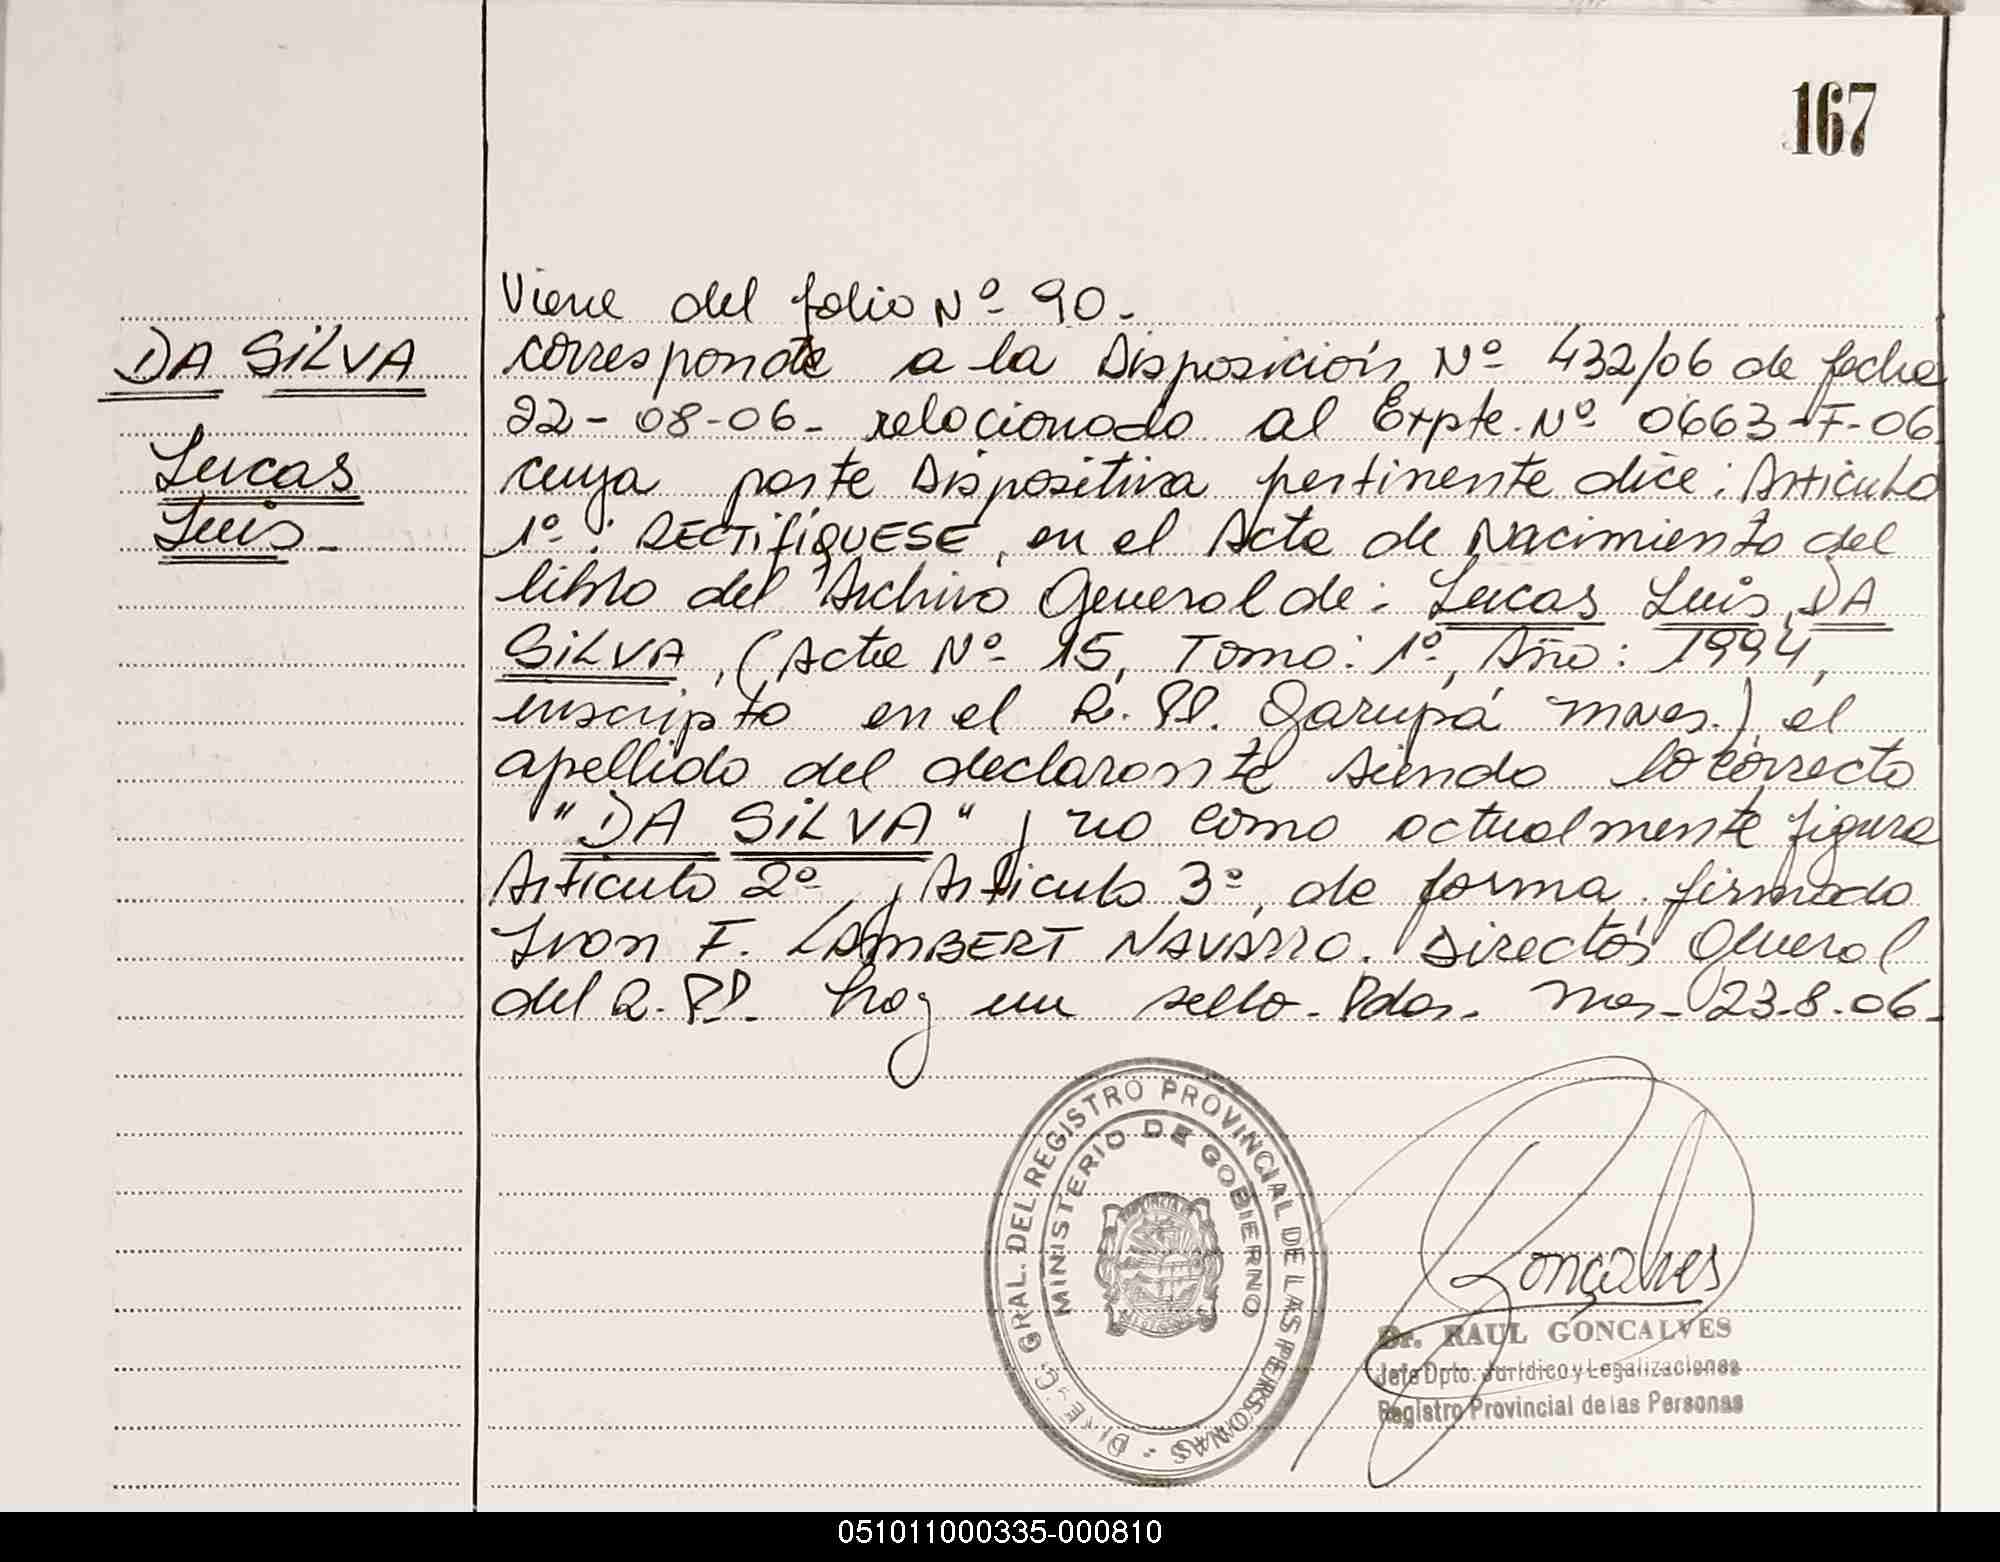 167
Viene del folio Nº 90.-
DA SILVA
Lucas
Luis.-
corresponde a la Disposición Nº 432/06 de fecha
22-08-06- relacionado al Expte. Nº 0663-F-06
cuya parte Dispositiva pertinente dice: Articulo
1º: RECTIFIQUESE, en el Acta de Nacimiento del
libro del Archivo General de: Lucas Luis DA
SILVA, (Acta Nº 15, Tomo: 1º, Año: 1994,
inscripto en el R.PP. Garupá Mnes.) el
apellido del declarante siendo lo correcto
"DA SILVA" y no como actualmente figura
Articulo 2º y Articulo 3º, de forma. firmado
Ivon F. LAMBERT NAVARRO. Director General
del R.PP. hay un sello. Pdas. Mnes- 23-8-06-
DIREC. GRAL. DEL REGISTRO PROVINCIAL DE LAS PERSONAS -
MINISTERIO DE GOBIERNO
Gonçalves
Dr. RAUL GONCALVES
Jefe Dpto. Jurídico y Legalizaciones
Registro Provincial de las Personas
051011000335-000810